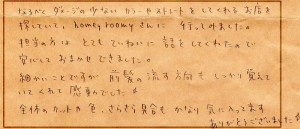 なるべくダメージの少ないカラーやストレートをしてくれるお店を
探していて、homey roomyさんに行ってみました。
担当の方はとてもていねいに話をしてくれたので
安心しておまかせできました。
細かいことですが前髪の流す方向もしっかり覚えて
いてくれて感動でした
全体のカットや色、さらさら具合もかなり気に入ってます
ありがとうございました